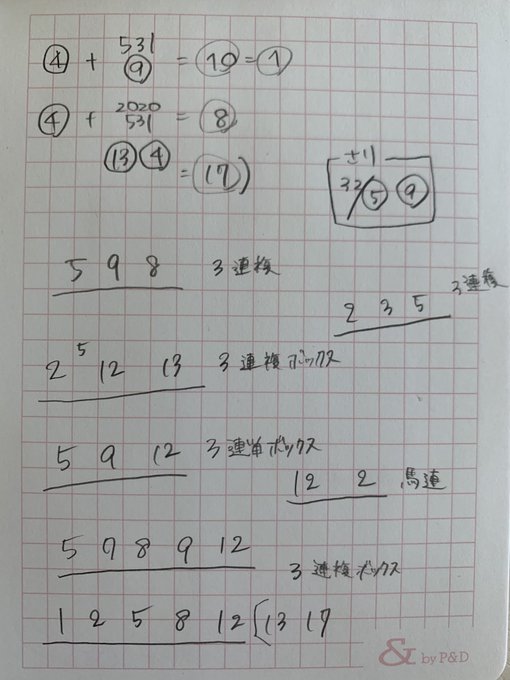 ④ + 531 ⑨ = ⑩ = ①
④ + 2020 531 = ⑧
⑬ ④ = ⑰)
32/⑤ ⑨
5 9 8 3連複
2 3 5 3連複
2 5 12 13 3連複ボックス
5 9 12 3連単ボックス
12 2 馬連
5 9 8 9 12
3連複ボックス
1 2 5 8 12 [13 17
& by P&D